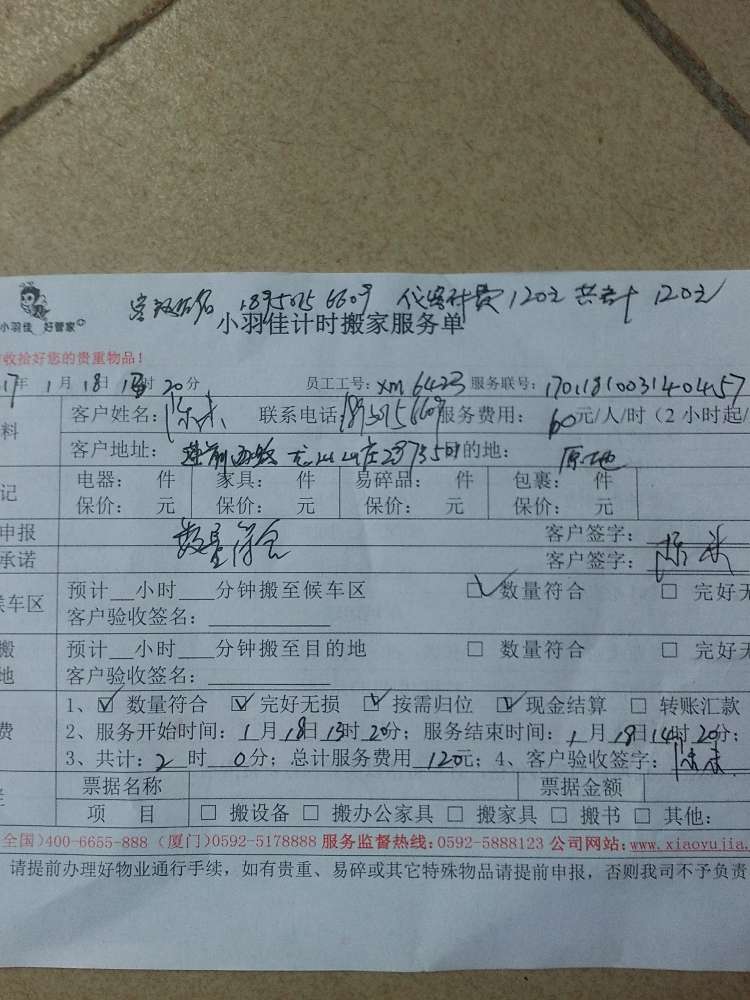 客 1895075 6609 120元 共计 120元
小羽佳 好管家
小羽佳计时搬家服务单
收拾好您的贵重物品!
17年 1月 18日 时 20分 员工工号: xm 6423 服务联号: 17011810031404157
料 客户姓名: 陈 联系电话: 18950756609 服务费用: 60元/人/时 (2小时起/
客户地址: 目的地: 原地
记 电器: 件 家具: 件 易碎品: 件 包裹: 件
保价: 元 保价: 元 保价: 元 保价: 元
申报 数量符合 客户签字:
承诺 客户签字: 陈
候车区 预计__小时___分钟搬至候车区 ☑ 数量符合 □ 完好无
客户验收签名:
搬 预计__小时___分钟搬至目的地 □ 数量符合 □ 完好无
地 客户验收签名:
1、☑ 数量符合 ☑ 完好无损 ☑ 按需归位 ☑ 现金结算 □ 转账汇款
费 2、服务开始时间: 1月18日 时20分; 服务结束时间: 1月18日14时20分;
3、共计: 2 时 0分; 总计服务费用 120元; 4、客户验收签字: 陈
票据名称 票据金额
项 目 □ 搬设备 □ 搬办公家具 □ 搬家具 □ 搬书 □ 其他:
全国)400-6655-888 (厦门)0592-5178888 服务监督热线:0592-5888123 公司网站:www.xiaoyujia.
请提前办理好物业通行手续，如有贵重、易碎或其它特殊物品请提前申报，否则我司不予负责